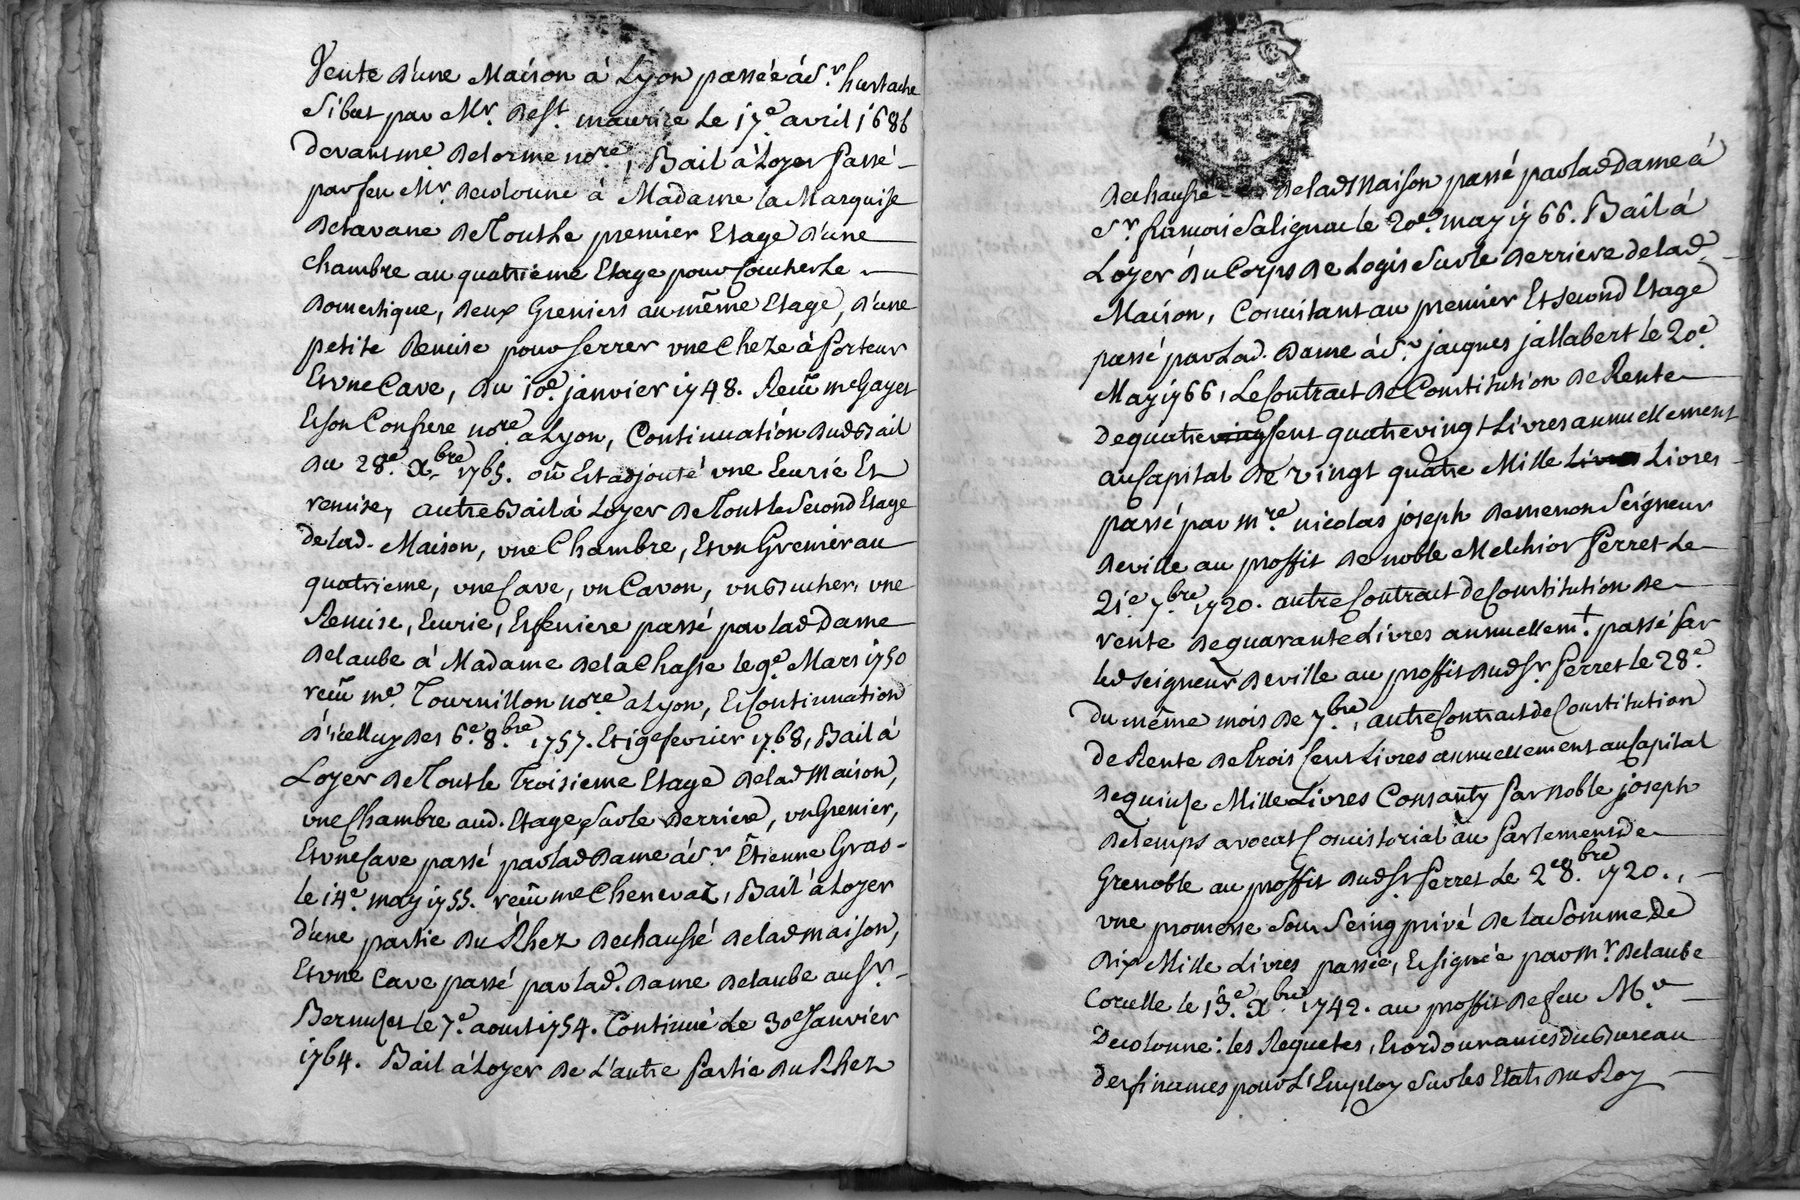 Vente d'une Maison à Lyon passée à Sr. hustache
Sibut par Mr. de St. maurice Le 17e avril 1686
devant me. Delorme nore, Bail à Loyer Passé
par feu Mr. Decolonne à Madame la Marquise
Detavane de Tout Le premier Etage d'une
chambre au quatriéme Etage pour Coucher Le
domestique, deux Greniers au même Etage, d'une
petite Remise pour serrer vne Cheze à Porteur
Et vne Cave, du 10e. janvier 1748. Recu me Gayet
Et son Confrere nore. a Lyon, Continuation dud Bail
du 28e. Xbre 1765. où Est adjouté vne Ecurie Et
remise, autre Bail à Loyer de Tout Le Second Etage
de lad. Maison, vne Chambre, Et vn Grenier au
quatrieme, vne Cave, vn Cavon, vn Bucher, vne
Remise, Ecurie, Et feniere passé par lad Dame
Delaube à Madame De la Chasse le 9e. Mars 1750
recu me. Tournillon nore a Lyon, Et Continuation
d'icelluy des 6e. 8bre 1757. Et 19e fevrier 1768, Bail à
Loyer de Tout Le Troisieme Etage de lad Maison,
vne Chambre aud. Etage Sur le derriere, vn Grenier,
Et vne Cave passé par lad Dame à Sr. Êtienne Gras
le 14e. may 1755. recu me Chenevaz, Bail à Loyer
d'une partie du Rhez dechaussé de lad maison,
Et vne Cave passé par lad. dame delaube au Sr.
Bernuset le 7e. aoust 1754. Continué Le 30e Janvier
1764. Bail à Loyer de L'autre Partie du Rhez
dechaussé de lad Maison passé par lad Dame à
Sr. francois Salignac le 20e. may 1766. Bail à
Loyer du Corps de Logis Sur le derriere de lad.
Maison, Consistant au premier Et second Etage
passé par Lad. Dame à Sr. jacques jallabert le 20e.
May 1766, Le Contract de Constitution de Rente
de quatre Cent quatrevingt Livres annuellement
au Capital de vingt quatre Mille Livres
passé par mre nicolas joseph demenon Seigneur
deville au proffit de noble Melchior Perret Le
21e 7bre 1720. autre Contract de Constitution de
rente de quarante Livres annuellemt. passé Par
led Seigneur deville au proffit dud Sr. Perret le 28e.
du même mois de 7bre, autre Contract de Constitution
de Rente de Trois Cent Livres annuellement au Capital
de quinse Mille Livres Consanty Par noble joseph
detemps avocat Consistorial au Parlement de
Grenoble au proffit dud Sr Perret Le 2e 8bre 1720.,
vne promesse Sous Seing privé de la Somme de
dix Mille Livres passée, Et signée par Mr. delaube
Corcelle le 13e. Xbre. 1742. au proffit de feu Mr.
Decolonne: les Requetes, Et ordonnances du Bureau
des finances pour L'Employ Sur les Etats du Roy